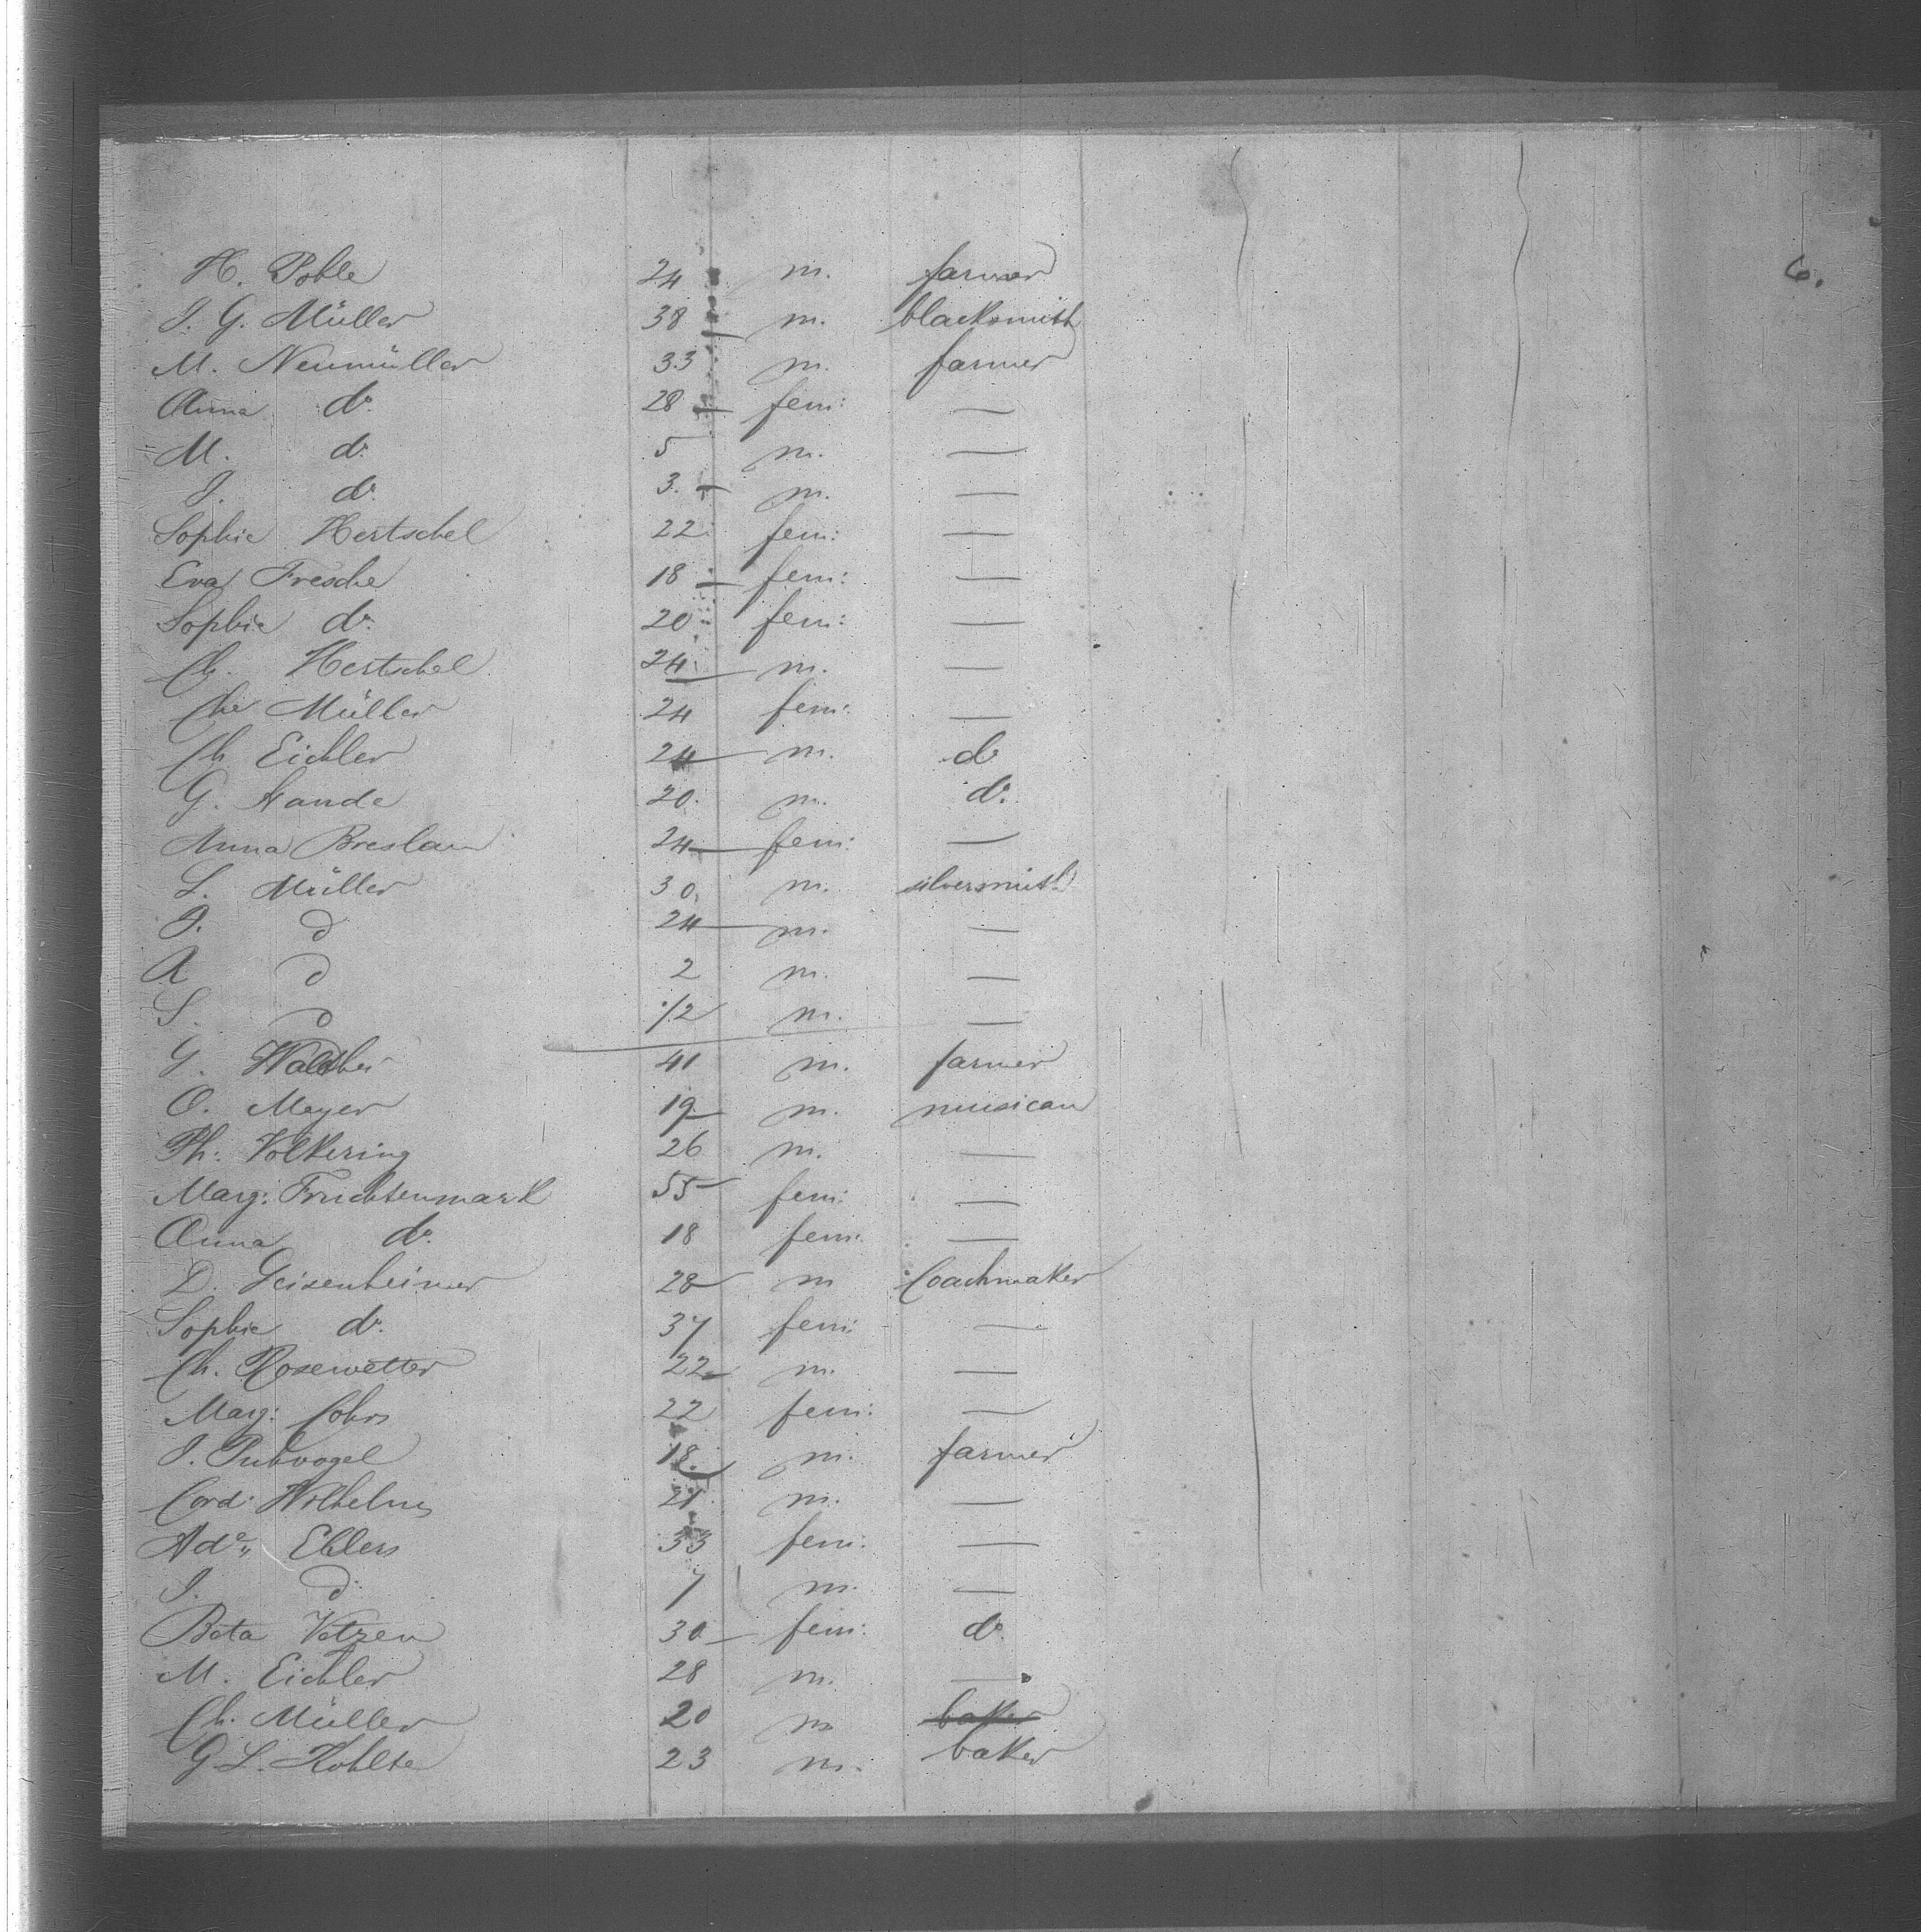 6.
H. Pohle 24 m. farmer
J. G. Müller 38 m. blacksmith
M. Neumüller 33 m. farmer
Anna do. 28 fem: —
M. do. 5 m. —
J. do. 3. m. —
Sophie Hertschel 22 fem: —
Eva Fresche 18 fem: —
Sophie do. 20 fem: —
Ch. Hertschel 24 m. —
Che Müller 24 fem: —
Ch Eichler 24 m. do
G. Hande 20. m. do.
Anna Breslau 24 fem: —
L. Müller 30. m. silversmith
J. d 24 m. —
A d 2 m. —
S. d 1/2 m. —
G. 41 m. farmer
O. Meyer 19 m. musican
Ph: Volkering 26 m. —
Marg: Fruchtenmark 55 fem: —
Anna do. 18 fem. —
D. Geisenheimer 28 m Coachmaker
Sophie do. 37 fem: —
Ch. Rosewetter 22 m. —
Marg: Cohrs 22 fem: —
J. Puhvogel 18. m. farmer
Cord: Wilhelms 21 m. —
Ade,, Ehlers 33 fem: —
J. d 7 m. —
Beta 30. fem: do.
M. Eichler 28 m. —
Ch. Müller 20 m baker
G. L. Kohlte 23 m. baker